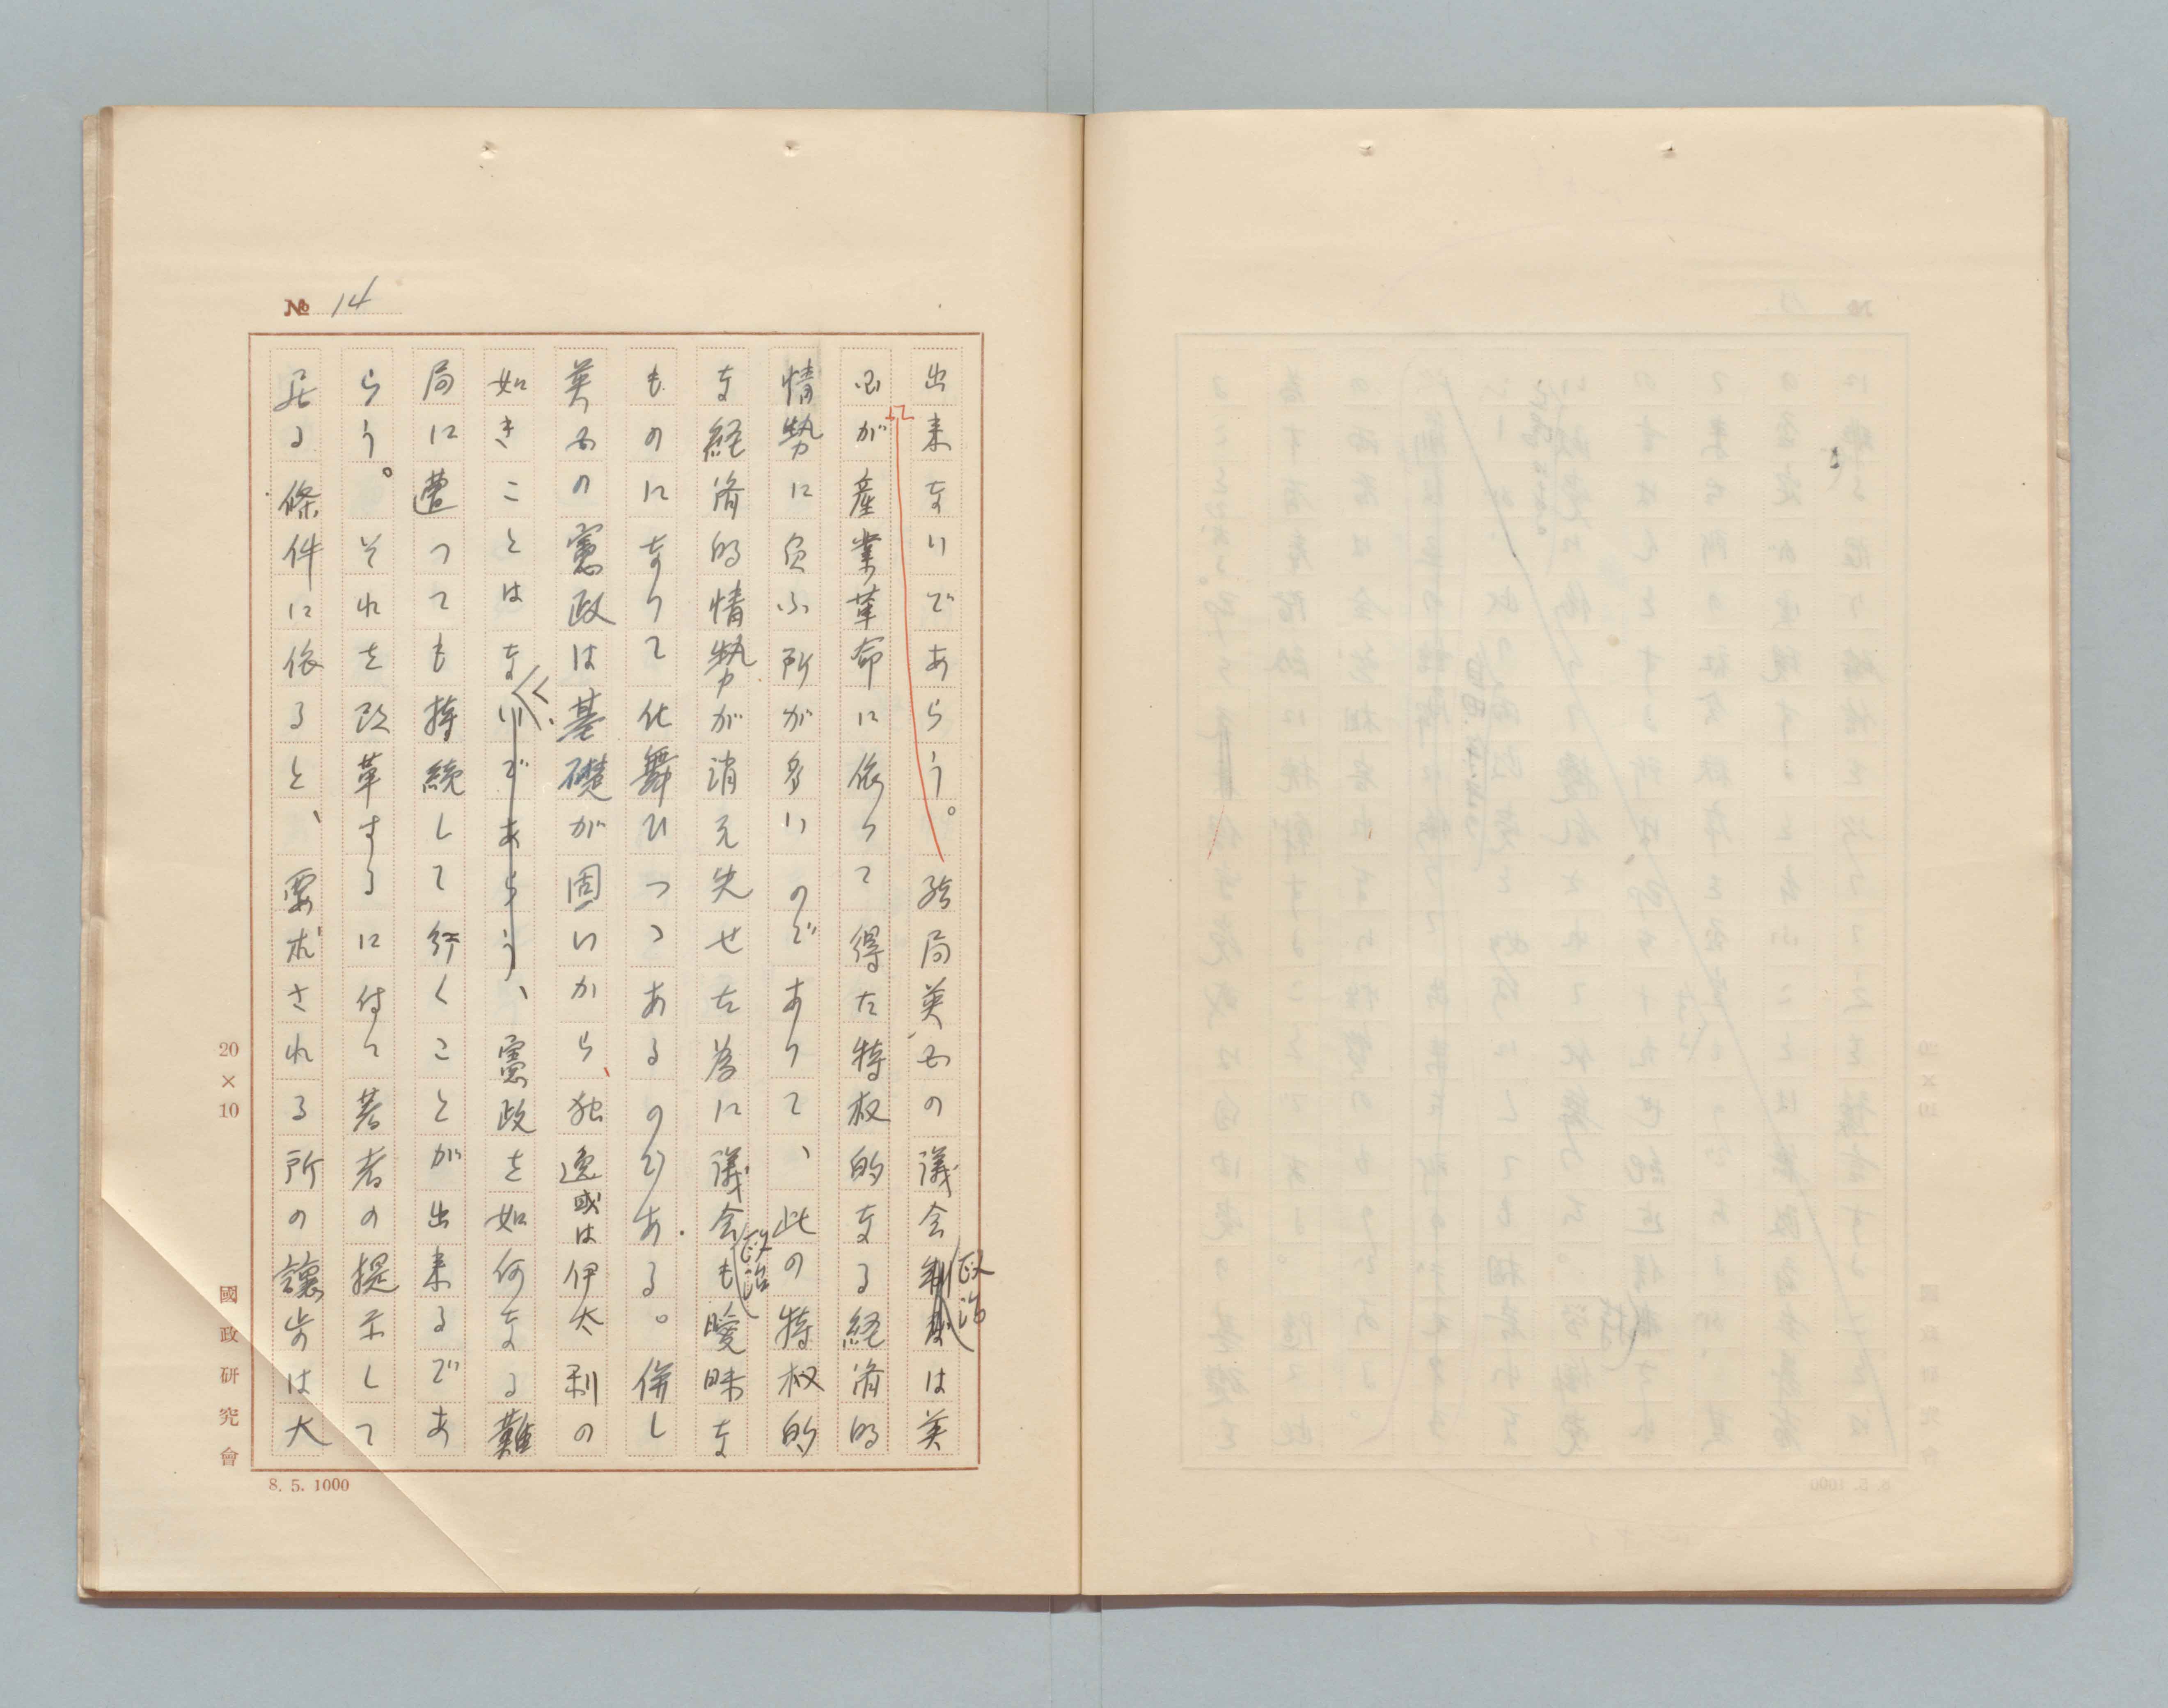 № 14
出来ないであらう。結局英国の議会政治は英
国が産業革命に依つて得た特权的なる経済的
情勢に負ふ所が多いのであつて、此の特权的
な経済的情勢が消え失せた為に議会政治も曖昧な
ものになつて仕舞ひつつあるのである。併し
英国の憲政は基礎が固いから、独逸或は伊太利の
如きことはなく、憲政を如何なる難
局に遭つても持続して行くことが出来るであ
らう。それを改革するに付て著者の提示して
居る條件に依ると、要求される所の譲歩は大
20×10
國政研究會
8. 5. 1000